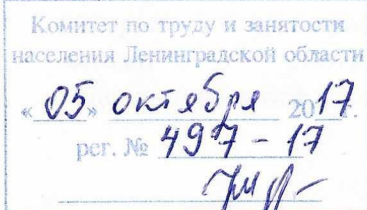 Комитет по труду и занятости
населения Ленинградской области
«05» октября 2017 г.
рег. № 497-17